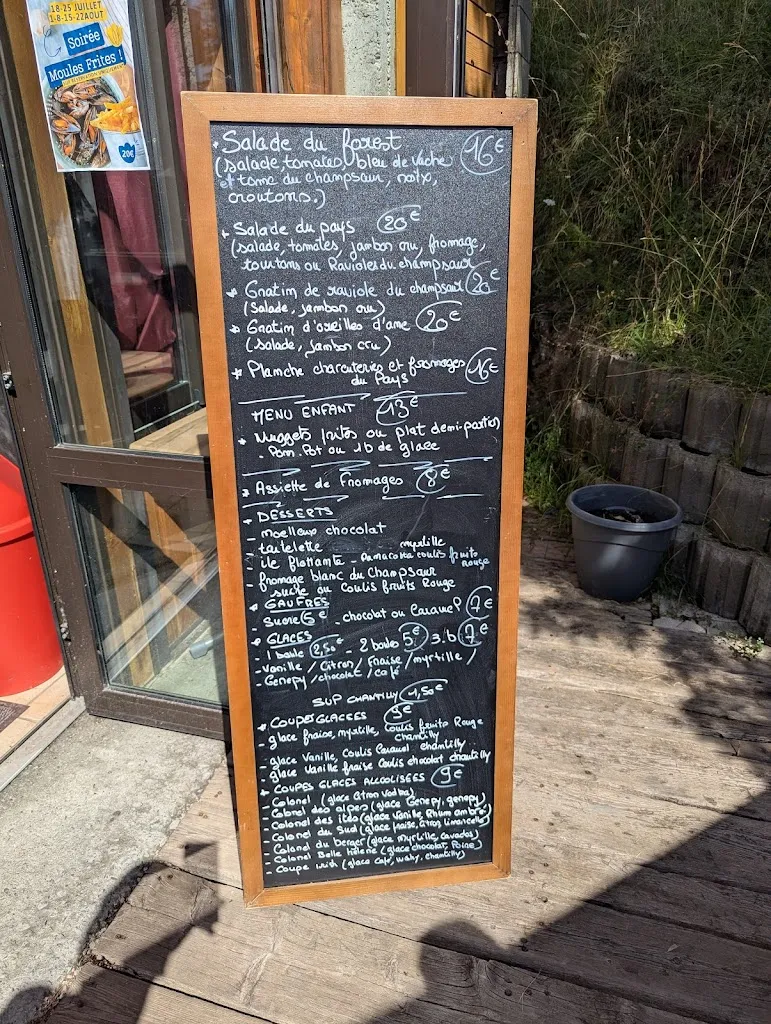 18-25 JUILLET
1-8-15-22 AOUT
Soirée
Moules Frites !
20€
• Salade du forest 16€
(salade, tomates, bleu de vache
et tome du champsaur, noix,
croutons.)
* Salade du pays 20€
(salade, tomates, jambon cru, fromage,
tourtons ou Ravioles du champsaur
* Gratin de raviole du champsaur 20€
(salade, jambon cru)
* Gratin d'oreilles d'ane 20€
(salade, jambon cru)
* Planche charcuteries et fromages 16€
du Pays
MENU ENFANT 13€
* Nuggets frites ou plat demi-portion
- Pom.Pot ou 1b de glace
* Assiette de Fromages 8€
* DESSERTS
- moelleux chocolat
- tartelette myrtille
- ile flottante - Panacotta coulis fruits rouge
- fromage blanc du Champsaur
sucre ou Coulis fruits Rouge
* GAUFRES
Sucre 6€ - chocolat ou Caramel 7€
* GLACES
- 1 boule 2,50€ - 2 boules 5€ 3.b 7€
- Vanille / Citron / Fraise / myrtille /
- Genepy / chocolat / café
SUP CHANTILLY 1,50€
* COUPES GLACEES 9€
- glace fraise, myrtille, coulis fruits Rouge
chantilly
- glace Vanille, Coulis Caramel chantilly
- glace Vanille fraise Coulis chocolat chantilly
* COUPES GLACES ALCOOLISEES 9€
- Colonel (glace citron vodka)
- Colonel des alpes (glace Genepy, genepy)
- Colonel des iles (glace Vanille Rhum ambré)
- Colonel du Sud (glace fraise, citron, limoncello)
- Colonel du berger (glace myrtille, cavados)
- Colonel Belle Hélène (glace chocolat, Poire)
- Coupe irish (glace café, wisky, chantilly)